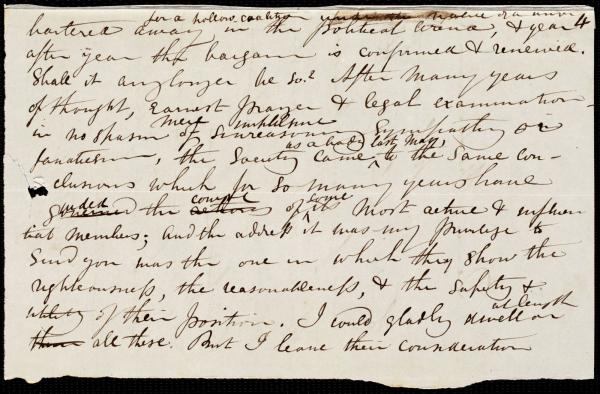 for a hollow coalition under the name of a union 4
bartered away in the political arena, & year
after year the bargain is confirmed & renewed.
Shall it any longer be so? After many years
of thought, earnest prayer & legal examination –
mere impulsive
in no spasm of unreasoning sympathy or
as a body last May,
fanaticism, the Society came to the same con-
clusions which for so many years have
guided the course of some
of its most active & influen
tial members; and the address it was my privilege to
send you was the one in which they show the
righteousness, the reasonableness, & the safety &
utility of their position. I could gladly dwell on
at length
them all these. But I leave their consideration